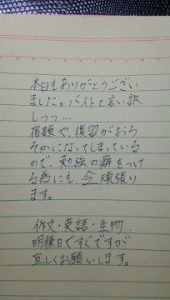 本日もありがとうござい
ました。バイトと言い訳
しつつ…
宿題や、復習がおろ
そかになってしまっている
ので、勉強の癖をつけ
る為にも、今頑張り
ます。
作文・英語・生物、
明後日ですぐですが
宜しくお願いします。